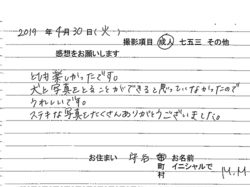 2019 年 4月 30日(火)
撮影項目 成人 七五三 その他
感想をお願いします
とても楽しかったです。
犬と写真をとることができると思っていなかったので
うれしいです。
ステキな写真をたくさんありがとうございました。
お住まい 市 町 村 お名前 イニシャルで M.M